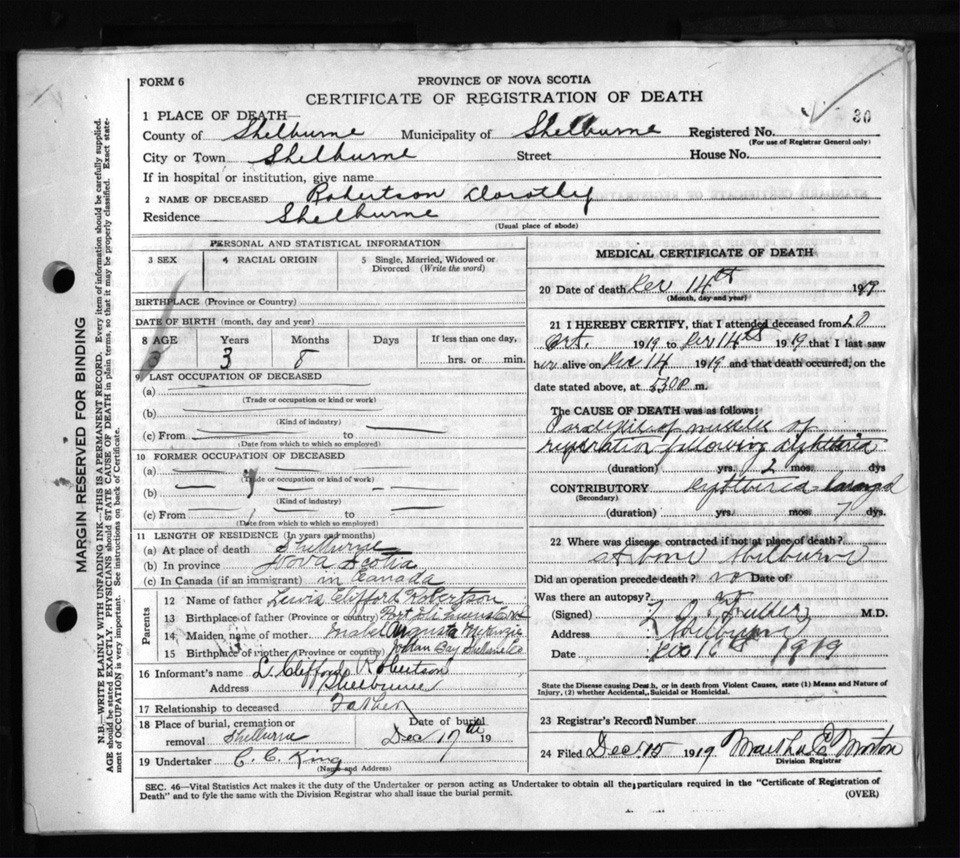 FORM 6
PROVINCE OF NOVA SCOTIA
CERTIFICATE OF REGISTRATION OF DEATH
30
1 PLACE OF DEATH—
County of Shelburne Municipality of Shelburne Registered No.
(For use of Registrar General only)
City or Town Shelburne Street House No.
If in hospital or institution, give name
2 NAME OF DECEASED Robertson Dorothy
Residence Shelburne
(Usual place of abode)
PERSONAL AND STATISTICAL INFORMATION
3 SEX 4 RACIAL ORIGIN 5 Single, Married, Widowed or Divorced (Write the word)
BIRTHPLACE (Province or Country)
DATE OF BIRTH (month, day and year)
8 AGE Years Months Days If less than one day,
3 8 hrs. or min.
9 LAST OCCUPATION OF DECEASED
(a)
(Trade or occupation or kind or work)
(b)
(Kind of industry)
(c) From to
(Date from which to which so employed)
10 FORMER OCCUPATION OF DECEASED
(a)
(Trade or occupation or kind of work)
(b)
(Kind of industry)
(c) From to
(Date from which to which so employed)
11 LENGTH OF RESIDENCE (In years and months)
(a) At place of death Shelburne
(b) In province Nova Scotia
(c) In Canada (if an immigrant) in Canada
Parents
12 Name of father Lewis Clifford Robertson
13 Birthplace of father (Province or country) Port
14 Maiden name of mother Mabel Augusta McKenzie
15 Birthplace of mother (Province or country) Jordan Bay Shelburne Co
16 Informant's name L. Clifford Robertson
Address Shelburne
17 Relationship to deceased Father
18 Place of burial, cremation or removal Shelburne Date of burial Dec 17th 19
19 Undertaker C. C. King
(Name and Address)
MEDICAL CERTIFICATE OF DEATH
20 Date of death Dec 14th 1919
(Month, day and year)
21 I HEREBY CERTIFY, that I attended deceased from 20
Oct. 1919 to Dec 14th 1919 that I last saw
her alive on Dec 14 1919 and that death occurred, on the
date stated above, at 530 P m.
The CAUSE OF DEATH was as follows:
Paralysis of muscles of
respiration following diphtheria
(duration) yrs. 2 mos. dys
CONTRIBUTORY Diphtheria
(Secondary)
(duration) yrs. mos. 7 dys.
22 Where was disease contracted if not at place of death?
at home Shelburne
Did an operation precede death? no Date of
Was there an autopsy? no
(Signed) Fuller M.D.
Address Shelburne
Date Dec 16th 1919
State the Disease causing Death, or in death from Violent Causes, state (1) Means and Nature of
Injury, (2) whether Accidental, Suicidal or Homicidal.
23 Registrar's Record Number
24 Filed Dec. 15 1919 Martha E. Morton
Division Registrar
SEC. 46—Vital Statistics Act makes it the duty of the Undertaker or person acting as Undertaker to obtain all the particulars required in the "Certificate of Registration of
Death" and to fyle the same with the Division Registrar who shall issue the burial permit. (OVER)
MARGIN RESERVED FOR BINDING
N.B.—WRITE PLAINLY WITH UNFADING INK—THIS IS A PERMANENT RECORD. Every item of information should be carefully supplied.
AGE should be stated EXACTLY. PHYSICIANS should STATE CAUSE OF DEATH in plain terms, so that it may be properly classified. Exact state-
ment of OCCUPATION is very important. See instructions on back of Certificate.